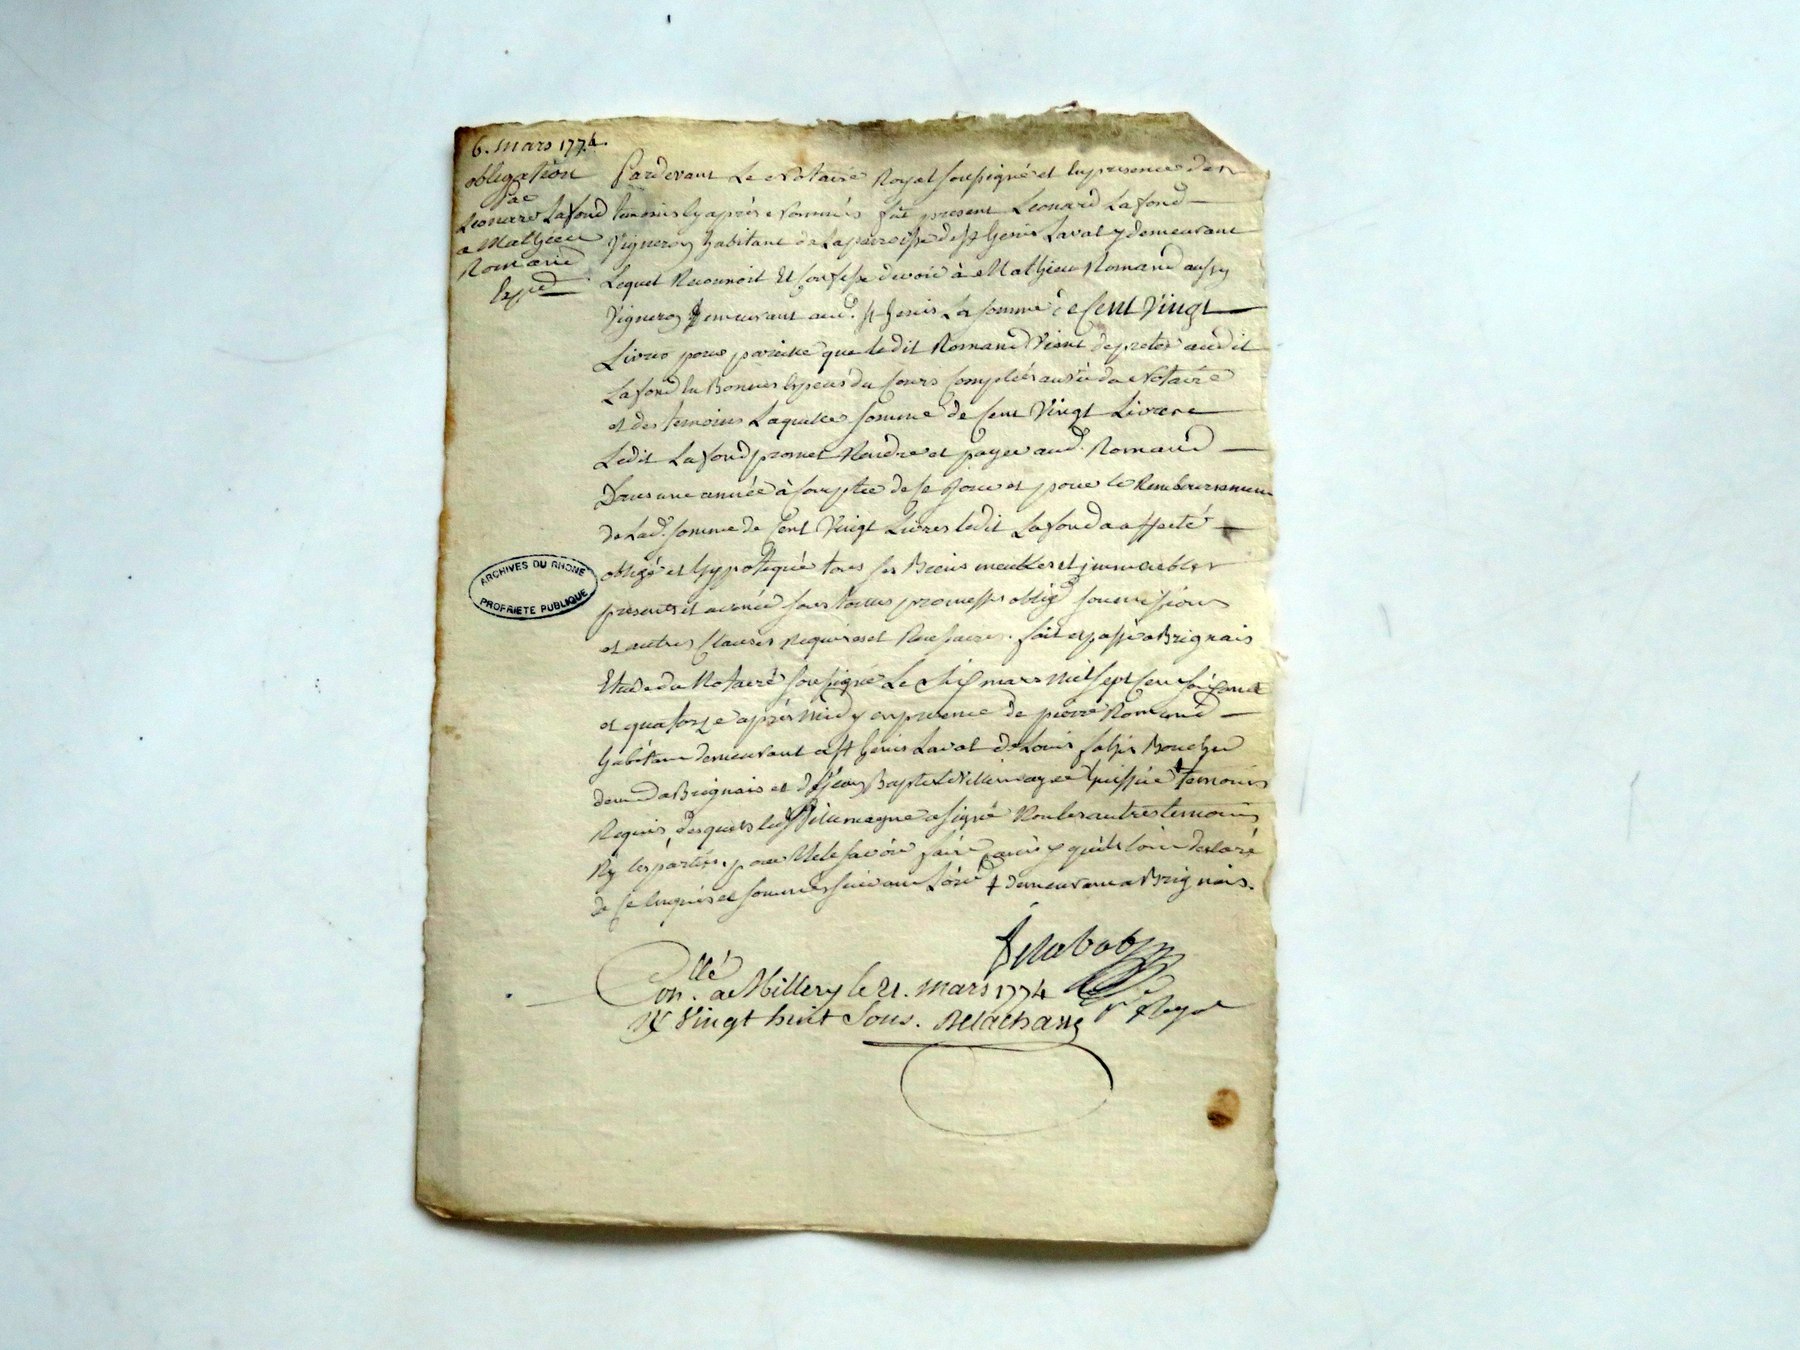 6. mars 1774.
obligation
par
Leonard Lafond
a Mathieu
Romand
Exped
Pardevant Le Notaire Royal soussigné et en presence des
temoins cy après nommés fut present Leonard Lafond
Vigneron habitant de la parroisse de St Genis Laval y demeurant
Lequel Reconnoit Et Confesse devoir à Mathieu Romand aussy
Vigneron demeurant aud. St Genis La somme de Cent Vingt
Livres pour pareille que ledit Romand Vient de preter audit
Lafond en Bonnes Especes du Cours Comptées au vû du Notaire
et des temoins Laquelle somme de Cent Vingt Livres
Ledit Lafond promet Rendre et payer aud. Romand
Dans une année à Compter de ce Jour et pour le Remboursement
de Lad. somme de Cent Vingt Livres ledit Lafond a affecté
obligé et hyppotequé tous ses Biens meubles et immeubles
presents et avenir sous toutes promesses oblig soumissions
et autres Clauses Requises et Necessaires. fait et passé a Brignais
Etude du Notaire soussigné Le Six mars Mil sept Cent soixante
et quatorze après Midy en presence de pierre Romand
habitant demeurant a St Genis Laval de Louis Boucher
demt a Brignais et de Sr Jean Baptiste Villemagne huissier + temoins
Requis, desquels led Sr Villemagne a signé Non les autres temoins
Ny les parties pour Ne le savoir faire ainsy qu'ils l'ont declaré
de Ce Enquis et sommés suivant L'ord + demeurant a Brignais.
ARCHIVES DU RHONE
PROPRIETE PUBLIQUE
Conllé. a Millery le 21. mars 1774
Rx Vingt huit Sous. Delachass